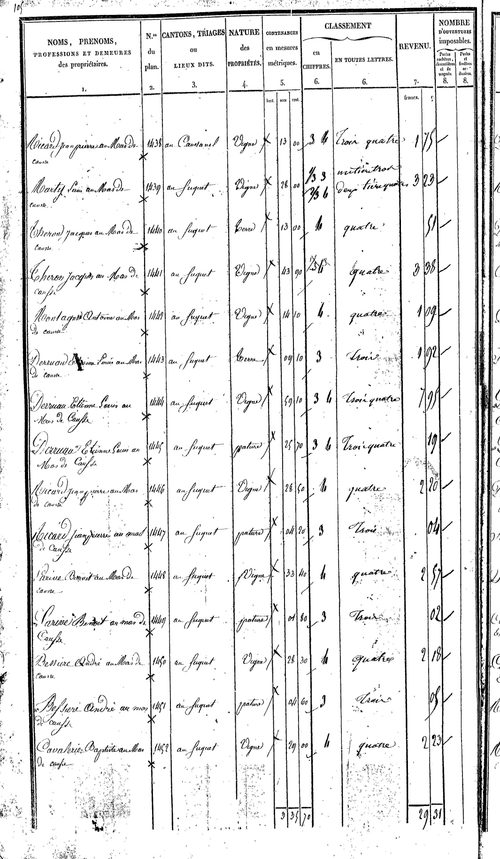 NOMS, PRÉNOMS,
PROFESSIONS ET DEMEURES
des propriétaires.
1.
N.os
du
plan.
2.
CANTONS, TRIAGES
ou
LIEUX DITS.
3.
NATURE
des
PROPRIÉTÉS.
4.
CONTENANCES
en mesures
métriques.
5.
CLASSEMENT
en
CHIFFRES.
6.
EN TOUTES LETTRES.
6.
REVENU.
7.
NOMBRE
D'OUVERTURES
imposables.
8.
8.
francs. c.
Ricard jeanpierre au Mas de 1438 au Cansanel Vigne 13 00 3 4 Trois quatre 1 75
causse
Marty Louis au Mas de 1439 au Suquet Vigne 28 00 3 23
causse
Theron Jacques au Mas de 1440 au Suquet Terre 13 00 4 quatre 51
causse
Theron Jacques au Mas de 1441 au Suquet Vigne 43 90 quatre 3 38
causse
Montagne Antoine au Mas 1442 au Suquet Vigne 14 10 4 quatre 1 09
de causse
Derruau Etienne Louis au Mas 1443 au Suquet Terre 09 10 3 Trois 1 92
de causse
Derruau Etienne Louis au 1444 au Suquet Vigne 59 10 3 4 Trois quatre 7 95
Mas de Causse
Derruau Etienne Louis au 1445 au Suquet pature 25 70 3 4 Trois quatre 19
Mas de Causse
Ricard jeanpierre au Mas 1446 au Suquet Vigne 28 50 4 quatre 2 20
de causse
Ricard jeanpierre au mas 1447 au Suquet pature 04 20 3 Trois 04
de Causse
Benoit au Mas de 1448 au Suquet Vigne 33 40 4 quatre 2 57
causse
Benoit au mas de 1449 au Suquet pature 01 80 3 Trois 02
Causse
Bessiere André au Mas de 1450 au Suquet Vigne 28 30 4 quatre 2 18
causse
Bessiere André au mas 1451 au Suquet pature 04 60 3 Trois 05
de causse
Cavalerie Baptiste au Mas 1452 au Suquet Vigne 29 00 4 quatre 2 23
de causse
3 35 70 29 31